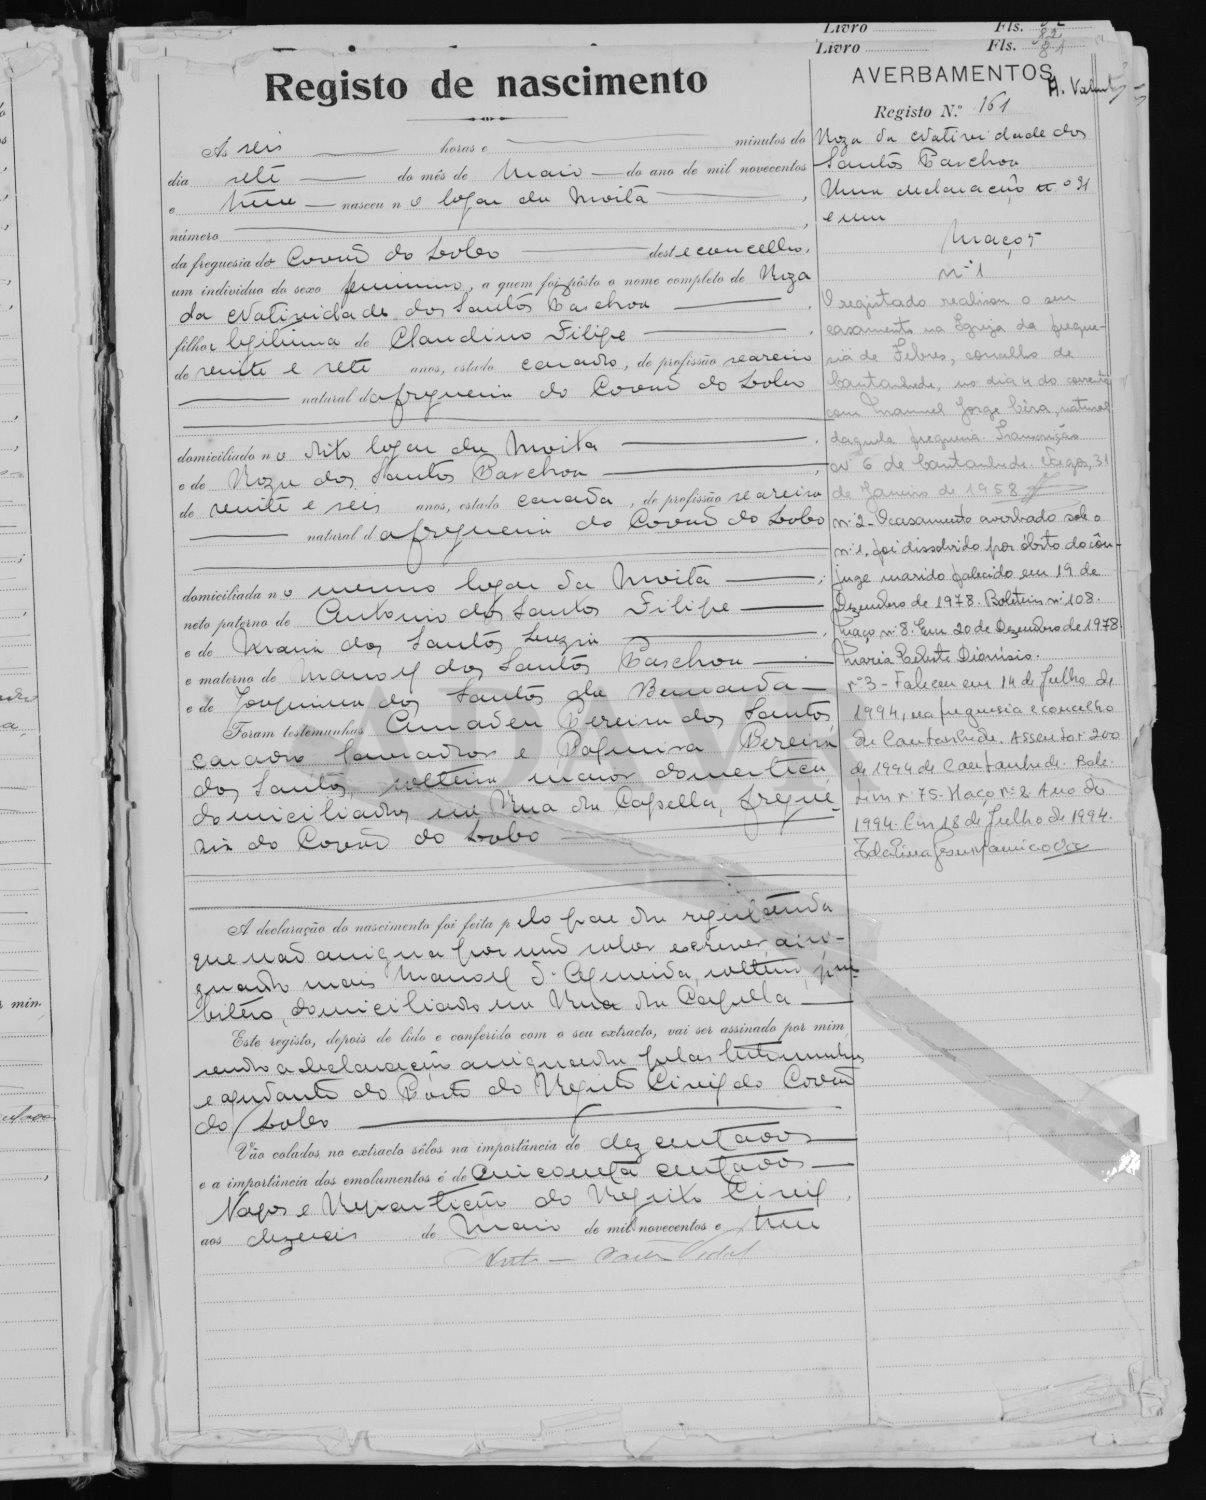 Livro Fls. 82
Livro Fls. 81
Registo de nascimento
AVERBAMENTOS
Registo N.º 161
Às seis horas e minutos do
dia sete do mês de Maio do ano de mil novecentos
e treze nasceu n o logar da Moita
número
da freguesia do Covão do Lobo deste concelho,
um indivíduo do sexo feminino, a quem foi pôsto o nome completo de Roza
da Natividade dos Santos Paschoa
filha legitima de Claudino Filipe
de vinte e sete anos, estado casado, de profissão seareiro
natural da freguesia do Covão do Lobo
domiciliado no dito logar da Moita
e de Roza dos Santos Paschoa
de vinte e seis anos, estado casada, de profissão seareira
natural da freguesia do Covão do Lobo
domiciliada no mesmo logar da Moita
neto paterno de Antonio dos Santos Filipe
e de Maria dos Santos Luzia
e materno de Manoel dos Santos Paschoa
e de Joaquina dos Santos da Bernarda
Foram testemunhas Amadeu Pereira dos Santos
casado lavrador e Pereira
dos Santos, solteira maior domestica,
domiciliados na Rua da Capella, fregue-
sia do Covão do Lobo
A declaração do nascimento foi feita pelo pae da registanda
que não assigna por não saber escrever, assi-
gnando mais Manoel d'Almeida, solteiro,
domiciliado na Rua da Capella
Este registo, depois de lido e conferido com o seu extracto, vai ser assinado por mim,
sendo a declaração assignada pelas testemunhas
e ajudante do Posto do Registo Civil do Covão
do Lobo
Vão colados no extracto sêlos na importância de dez centavos
e a importância dos emolumentos é de cincoenta centavos
Vagos e Repartição do Registo Civil,
aos dezeseis de Maio de mil novecentos e treze
Roza da Natividade dos
Santos Paschoa
Uma declaração
e um
Maço 5
nº 1
O registado realizou o seu
casamento na Igreja da fregue-
sia de Febres, concelho de
Cantanhede, no dia 4 do corrente
com Manuel Jorge Cêra, natural
daquela freguesia. Transcrição
nº 6 de Cantanhede. Vagos, 31
de Janeiro de 1958
nº 2 - O casamento averbado sob o
nº 1, foi dissolvido por óbito do côn-
juge marido falecido em 19 de
Dezembro de 1978. Boletim nº 108.
Maço nº 8. Em 20 de Dezembro de 1978.
Maria Celeste Dionísio.
nº 3 - Faleceu em 14 de Julho de
1994, na freguesia e concelho
de Cantanhede. Assento nº 200
de 1994 de Cantanhede. Bole-
tim nº 75. Maço nº 2. Ano de
1994. Em 18 de Julho de 1994.